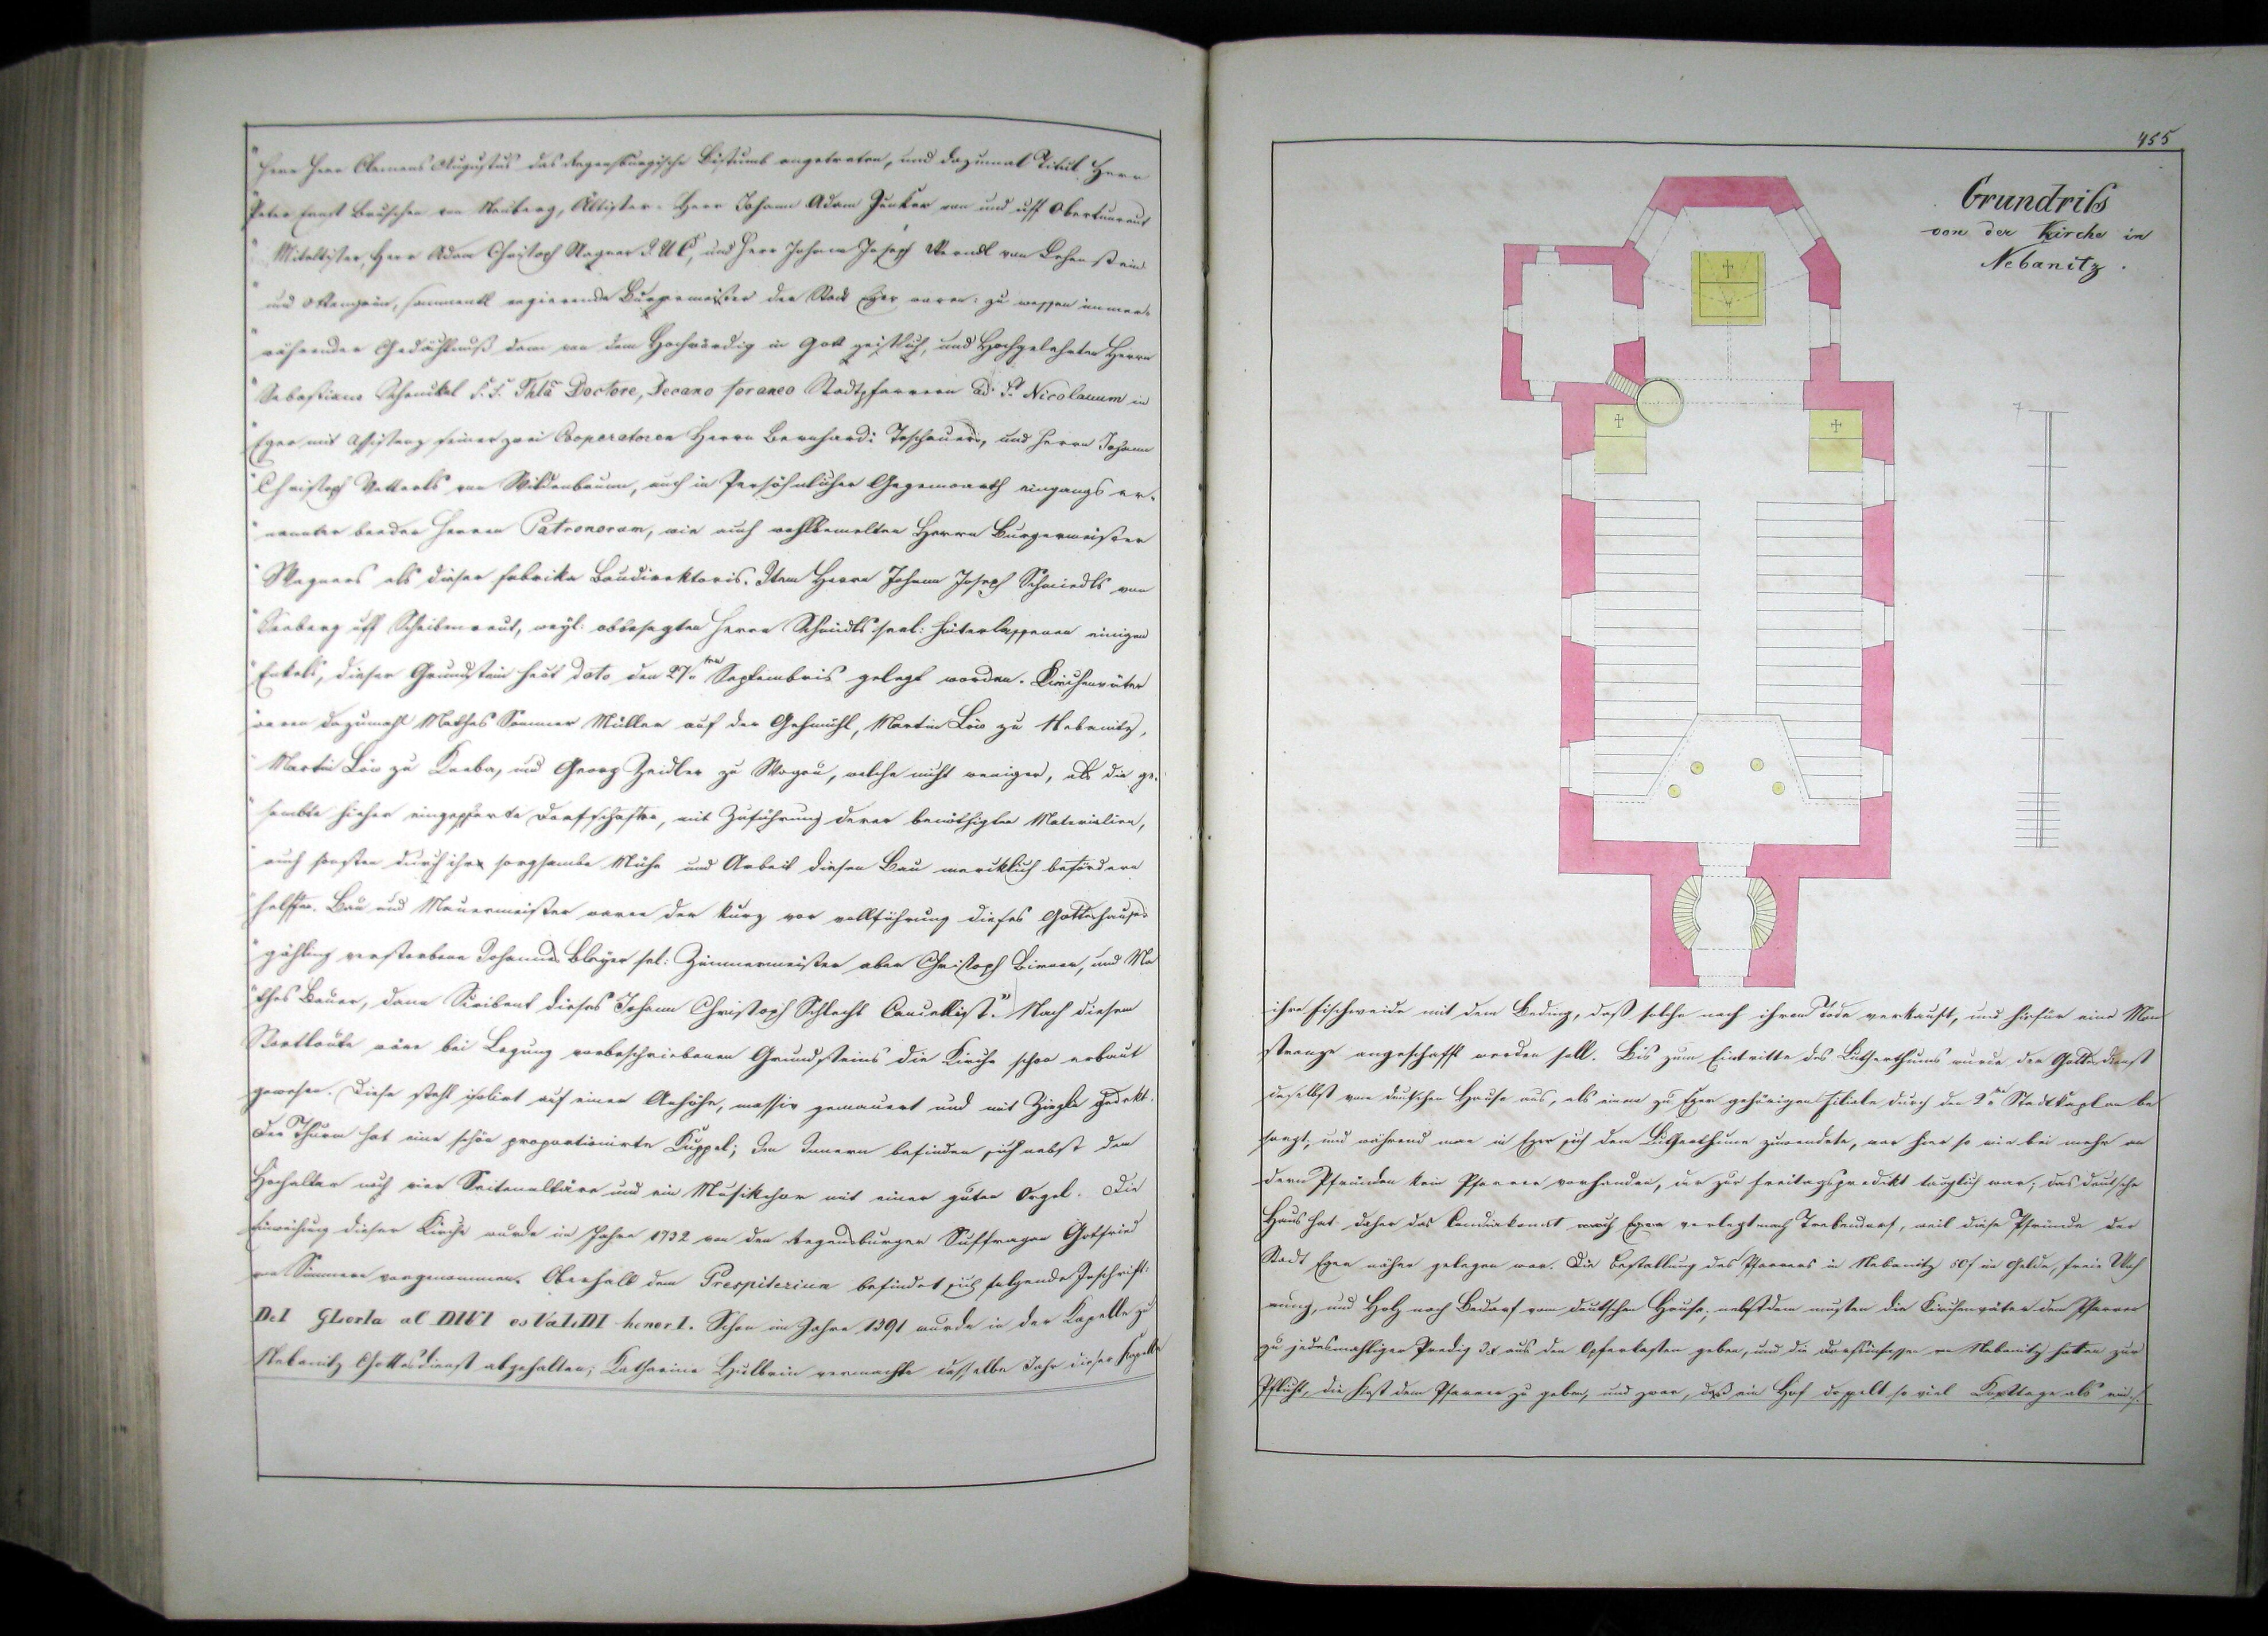 Herr Herr Clemens Augustus das Regensburgische Bistumb angetreten, und dazumal Titul Herr
Peter Ernst Bruschen von Neuberg, Ältister. Herr Johann Adam Junker von und uff Oberkunreut
Mitältister, Herr Adam Christoph Wagner I.U.C., und Herr Johann Joseph Werndl von Lehenstein
und Ottengrün, sammentl regierende Burgermeister der Stadt Eger waren: zu wessen immer-
währender Gedächtnuß dann von dem Hochwürdig in Gott geistlich, und Hochgelehrten Herrn
Sebastiano Schenckel S.S. Thlã Doctore, Decano foraneo Stadtpfarrern ad St Nicolauum in
Eger mit Assistenz seiner zwei Cooperatoren Herrn Bernhardi Toschaueri, und Herrn Johann
Christoph Vetterls von Wildenbrunn, auch in Persöhnlicher Gegenwarth eingangs er-
nannter beeder Herren Patronorum, wie auch wohlbemelten Herrn Burgermeister
Wagners als dieser fabrika Baudirektoris. Item Herrn Johann Joseph Schmiedls von
Seeberg uff Scheibenreut, weyl: obbesagten Herrn Schmidls seel: hinterlassenen einigen
Enkels, dieser Grundstein heut dato den 27ten Septembris gelegt worden. Kirchenväter
waren dazumahl Mathes Sommer Müller auf der Gehmühl, Martin Löw zu Nebanitz,
Martin Löw zu Dreba, und Georg Zeidler zu Wogau, welche nicht weniger, als die ge-
sambte hieher eingepfarrte Dorfschaften, mit Zuführung derer benöthigten Materialien,
auch sonsten durch ihre sorgsambe Mühe und Arbeit diesen Bau mercklich befördern
helffen. Bau und Mauermeister waren der kurz vor vollführung dieses Gotteshauses
gähling verstorbene Johannes Bleyer sel: Zimmermeister aber Christoph Birner, und Ma
thes Bauer, dann Scribent dieses Johann Christoph Schlecht Cancellist." Nach diesem
Wortlaute wäre bei Legung vorbeschriebenen Grundsteins die Kirche schon erbaut
gewesen. Diese steht isolirt auf einer Anhöhe, massiv gemauert und mit Ziegln gedekt.
Der Thurm hat eine schön proportionirte Kuppel; Im Innern befinden sich nebst dem
Hochaltar noch vier Seitenaltäre und ein Musikchor mit einer guten Orgel. Die
Einweihung dieser Kirche wurde im Jahre 1732 von den Regensburger Suffragan Gotfried
von Simmern vorgenommen. Oberhalb dem Prespiterium befindet sich folgende Inschrift:
DeI gLorIa aC DIVI osVaLDI honorI. Schon im Jahre 1391 wurde in der Kapelle zu
Nebanitz Gottesdienst abgehalten; Katharina Hulbrin vermachte dasselbe Jahr dieser Kapelle
455
Grundriß
von der Kirche in
Nebanitz.
7
ihre Fischweide mit dem Beding, daß solche nach ihrem Tode verkauft, und hiefür eine Mon
stranze angeschafft werden soll. Bis zum Eintritte des Lutherthums wurde der Gottesdienst
daselbst vom deutschen Hause aus, als einer zu Eger gehörigen Filiale durch den 2ten Stadtkaplan be
sorgt, und während man in Eger sich dem Lutherthume zuwendete, war hier so wie bei mehr an
dern Pfründen kein Pfarrer vorhanden, der zur Freitagspredikt tauglich war; das deutsche
Haus hat daher das Condiakonat nach Eger verlegt nach Trebendorf, weil diese Pfründe der
Stadt Eger näher gelegen war. Die Bestallung des Pfarrers in Nebanitz 50f im Gelde, freie Woh
nung, und Holz nach Bedarf vom deutschen Hause, nebstdem mußten die Kirchenväter dem Pfarrer
zu jedesmahliger Predig 3x aus den Opferkasten geben, und die Dorfinsassen von Nebanitz hatten zur
Pflicht, die Kost dem Pfarrer zu geben, und zwar, daß ein Hof doppelt so viel Kosttage als ein